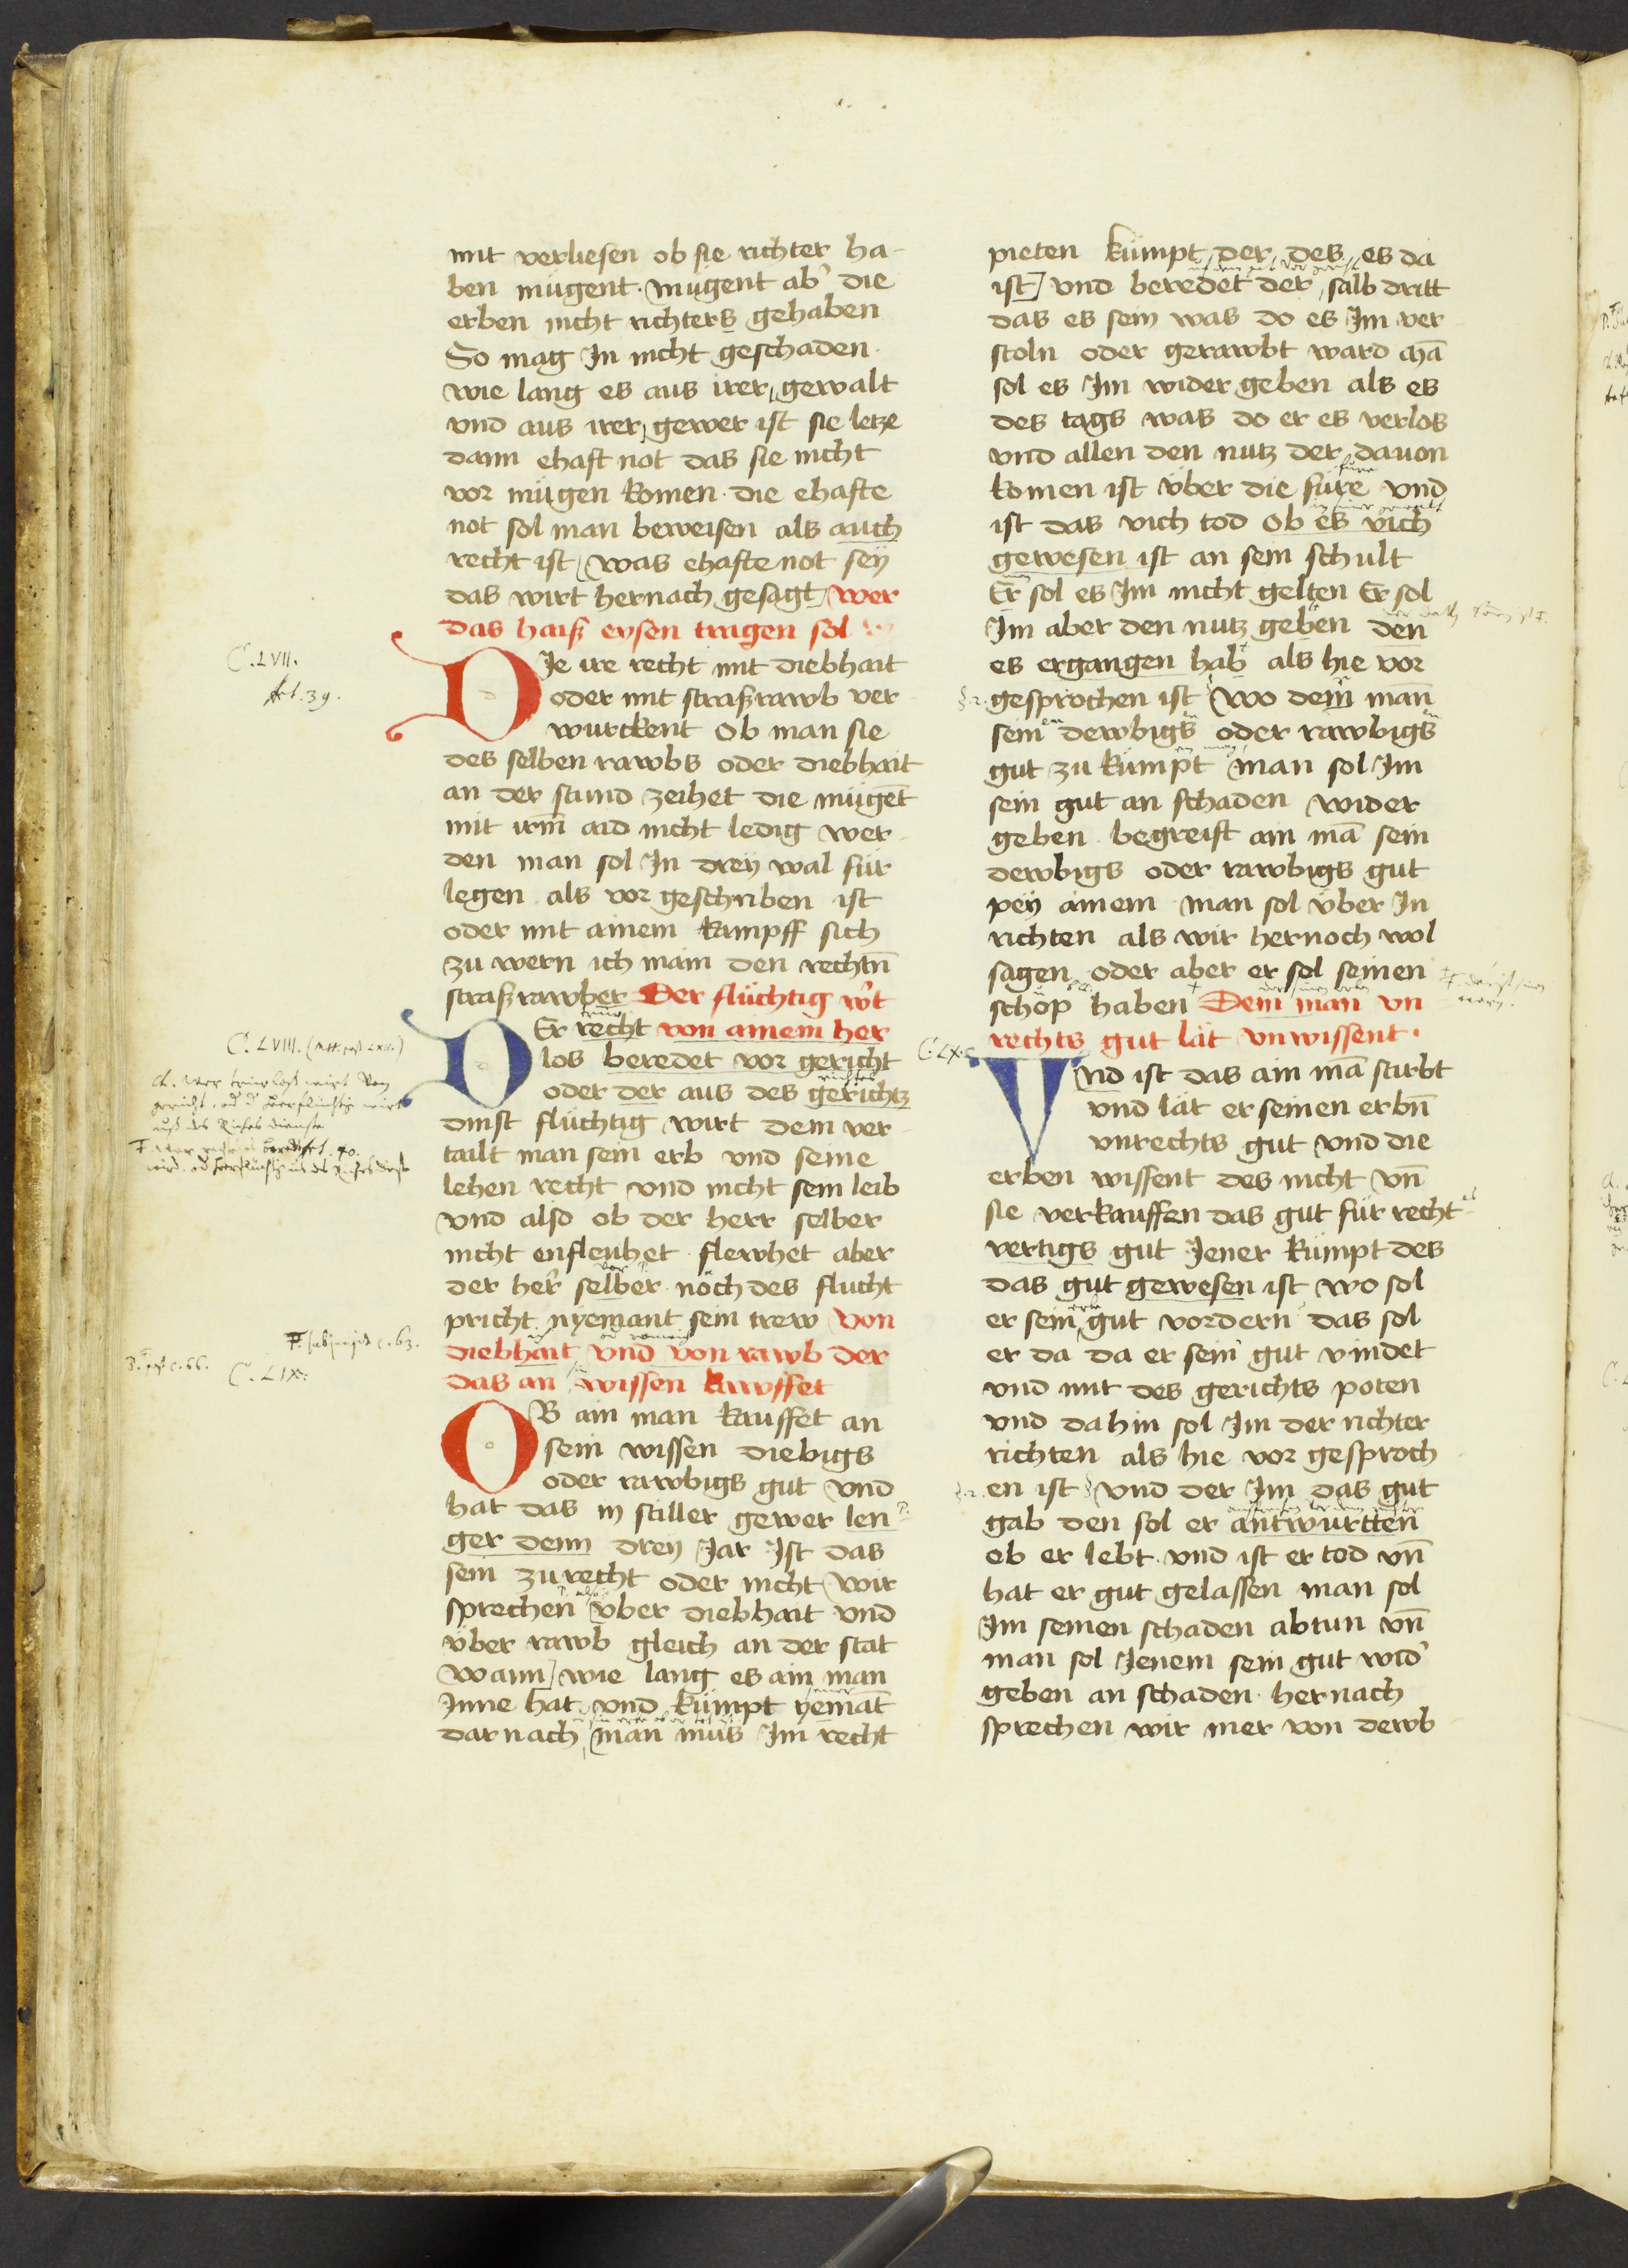 mit verliesen ob sie richter ha-
ben mügent. mugent ab' die
erben nicht richters gehaben
So mag In nicht geschaden.
wie lang es aus irer gewalt
vnd aus irer gewer ist sie letze
dann ehaft not das sie nicht
vor mügen komen. die ehafte
not sol man beweisen als auch
recht ist was ehafte not seÿ
das wirt hernach gesagt wer
das haiß eysen tragen sol
C. LVII.
Art. 39.
DJe ire recht mit diebhait
oder mit straßrawb ver-
wurckent Ob man sie
des selben rawbs oder diebhait
an der stund zeihet die mügēt
mit irm̄ aid nicht ledig wer-
den man sol In dreÿ wal für
legen als vor geschriben ist
oder mit ainem kampff sich
zu wern ich main den rechtn̄
straßrawber Der flüchtig w't
C. LVIII.
DEr recht von ainem her
los beredet vor gericht
oder der aus des gerichtz
dinst flüchtig wirt dem ver-
tailt man sein erb vnd seine
lehen recht vnd nicht sein leib
vnd also ob der herr selber
nicht enfleuhet. flewhet aber
der her' selber. noch des flucht
pricht nyemant sein trew Von
diebhait vnd von rawb der
das an wissen kawffet
C. LIX.
OB ain man kauffet an
sein wissen diebigs
oder rawbigs gut vnd
hat das in stiller gewer len-
ger denn dreÿ Jar Ist das
sein zu recht oder nicht wir
sprechen vber diebhait vnd
vber rawb gleich an der stat
wann wie lang es ain man
Inne hat. vnd kümpt yemāt
darnach man mus Im recht
pieten kümpt der des es da
ist vnd beredet der salb dritt
das es sein was do es Im ver-
stoln oder gerawbt ward mā
sol es Im wider geben als es
des tags was do er es verlos
vnd allen den nutz der dauon
komen ist vber die fure vnd
ist das vich tod Ob es vich
gewesen ist an sein schult
Er sol es Im nicht gelten Er sol
Im aber den nutz geben den
es ergangen hab als hie vor
gesprochen ist wo dem man
sein dewbigs oder rawbigs
gut zu kümpt man sol Im
sein gut an schaden wider
geben. begreift ain mā sein
dewbigs oder rawbigs gut
peÿ ainem man sol vber In
richten als wir hernoch wol
sagen oder aber er sol seinen
schöp haben Dem man vn
rechts gut lät vnwissent.
C. LX.
VNd ist das ain mā starbt
vnd lät er seinen erbn̄
vnrechts gut vnd die
erben wissent des nicht vn̄
sie verkauffen das gut für recht-
vertigs gut Jener kümpt des
das gut gewesen ist wo sol
er sein gut vordern das sol
er da da er sein gut vindet
vnd mit des gerichts poten
vnd dahin sol Im der richter
richten als hie vor gesproch-
en ist vnd der Im das gut
gab den sol er antwurtten
ob er lebt. vnd ist er tod vn̄
hat er gut gelassen man sol
Im seinen schaden abtun vn̄
man sol Jenem sein gut wid'
geben an schaden. hernach
sprechen wir mer von dewb